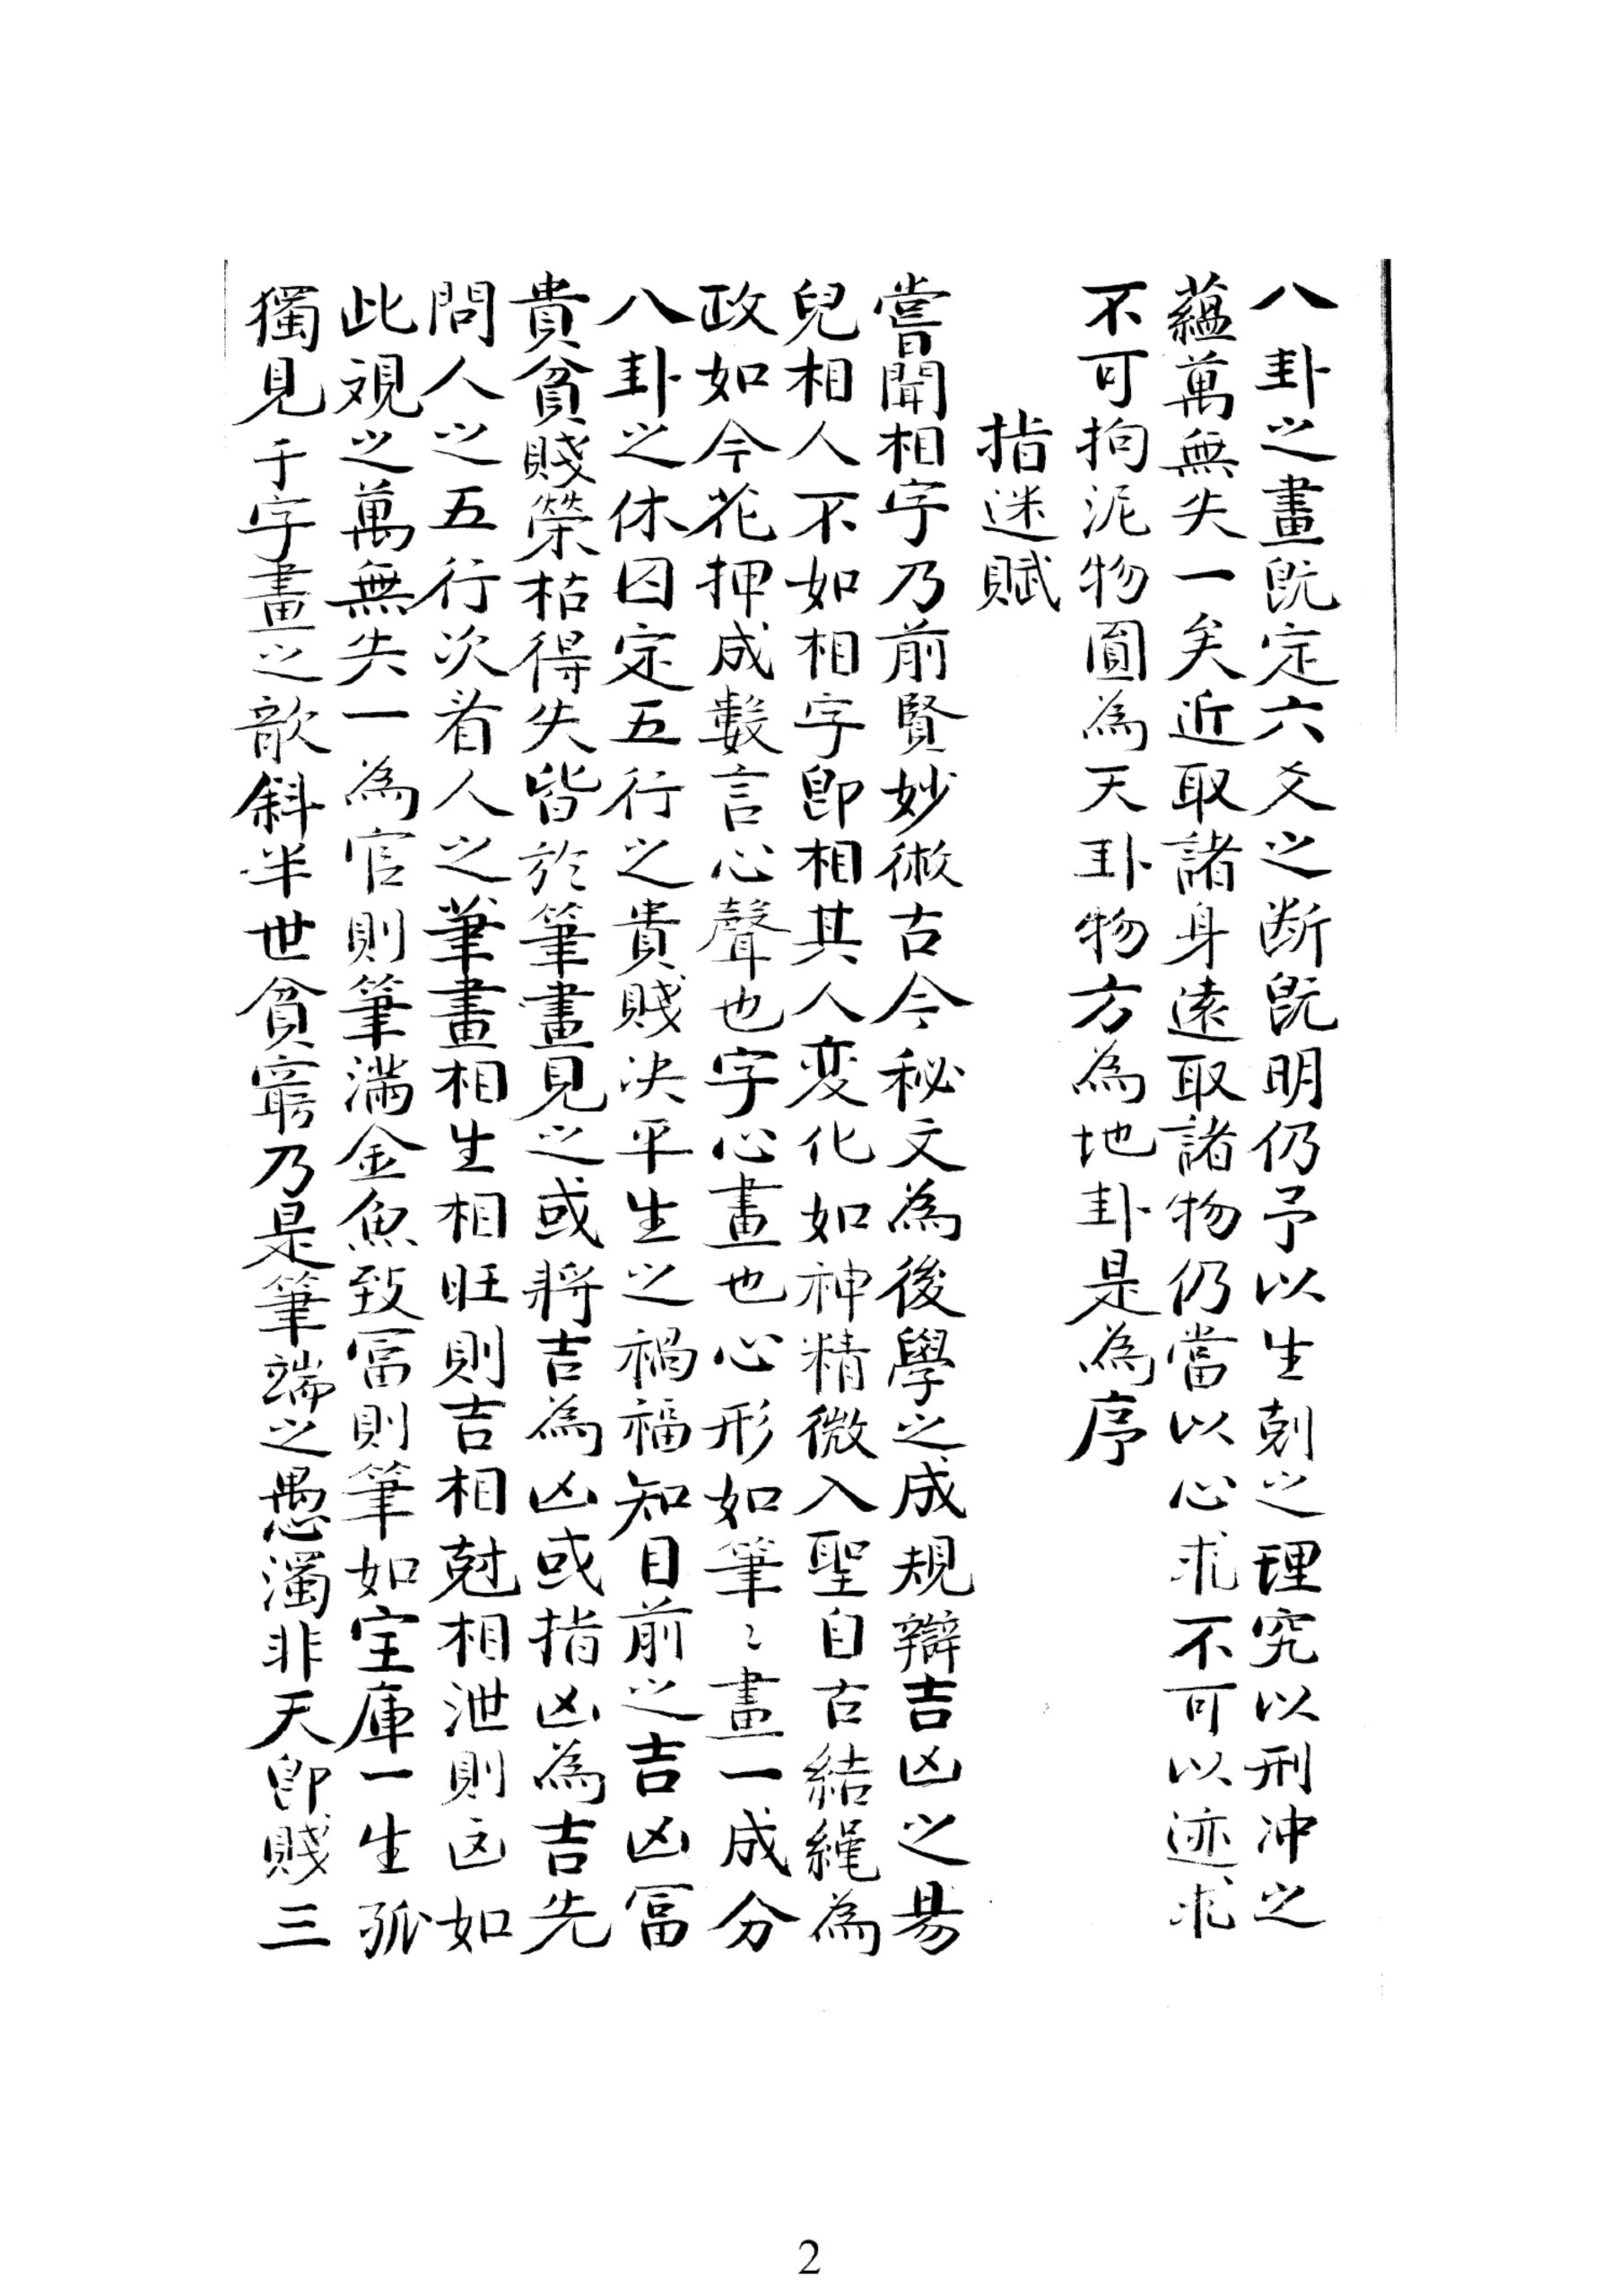 八卦之畫既定六爻之断既明仍予以生剋之理究以刑冲之
蘊萬無失一矣近取諸身遠取諸物仍當以心求不可以迹求
不可拘泥物圓為天卦物方為地卦是為序
指迷賦
嘗聞相字乃前賢妙術古今秘文為後學之成規辯吉凶之易
兒相人不如相字即相其人変化如神精微入聖自古結繩為
政如今花押成數言心聲也字心畫也心形如筆〻畫一成分
八卦之休囚定五行之貴賤决平生之禍福知目前之吉凶冨
貴貧賤榮枯得失皆於筆畫見之或將吉為凶或指凶為吉先
問人之五行次看人之筆畫相生相旺則吉相尅相泄則凶如
此覌之萬無失一為官則筆滿金魚致冨則筆如宝庫一生孤
獨見于字畫之歆斜半世貧窮乃是筆端之愚濁非天即賤三
2